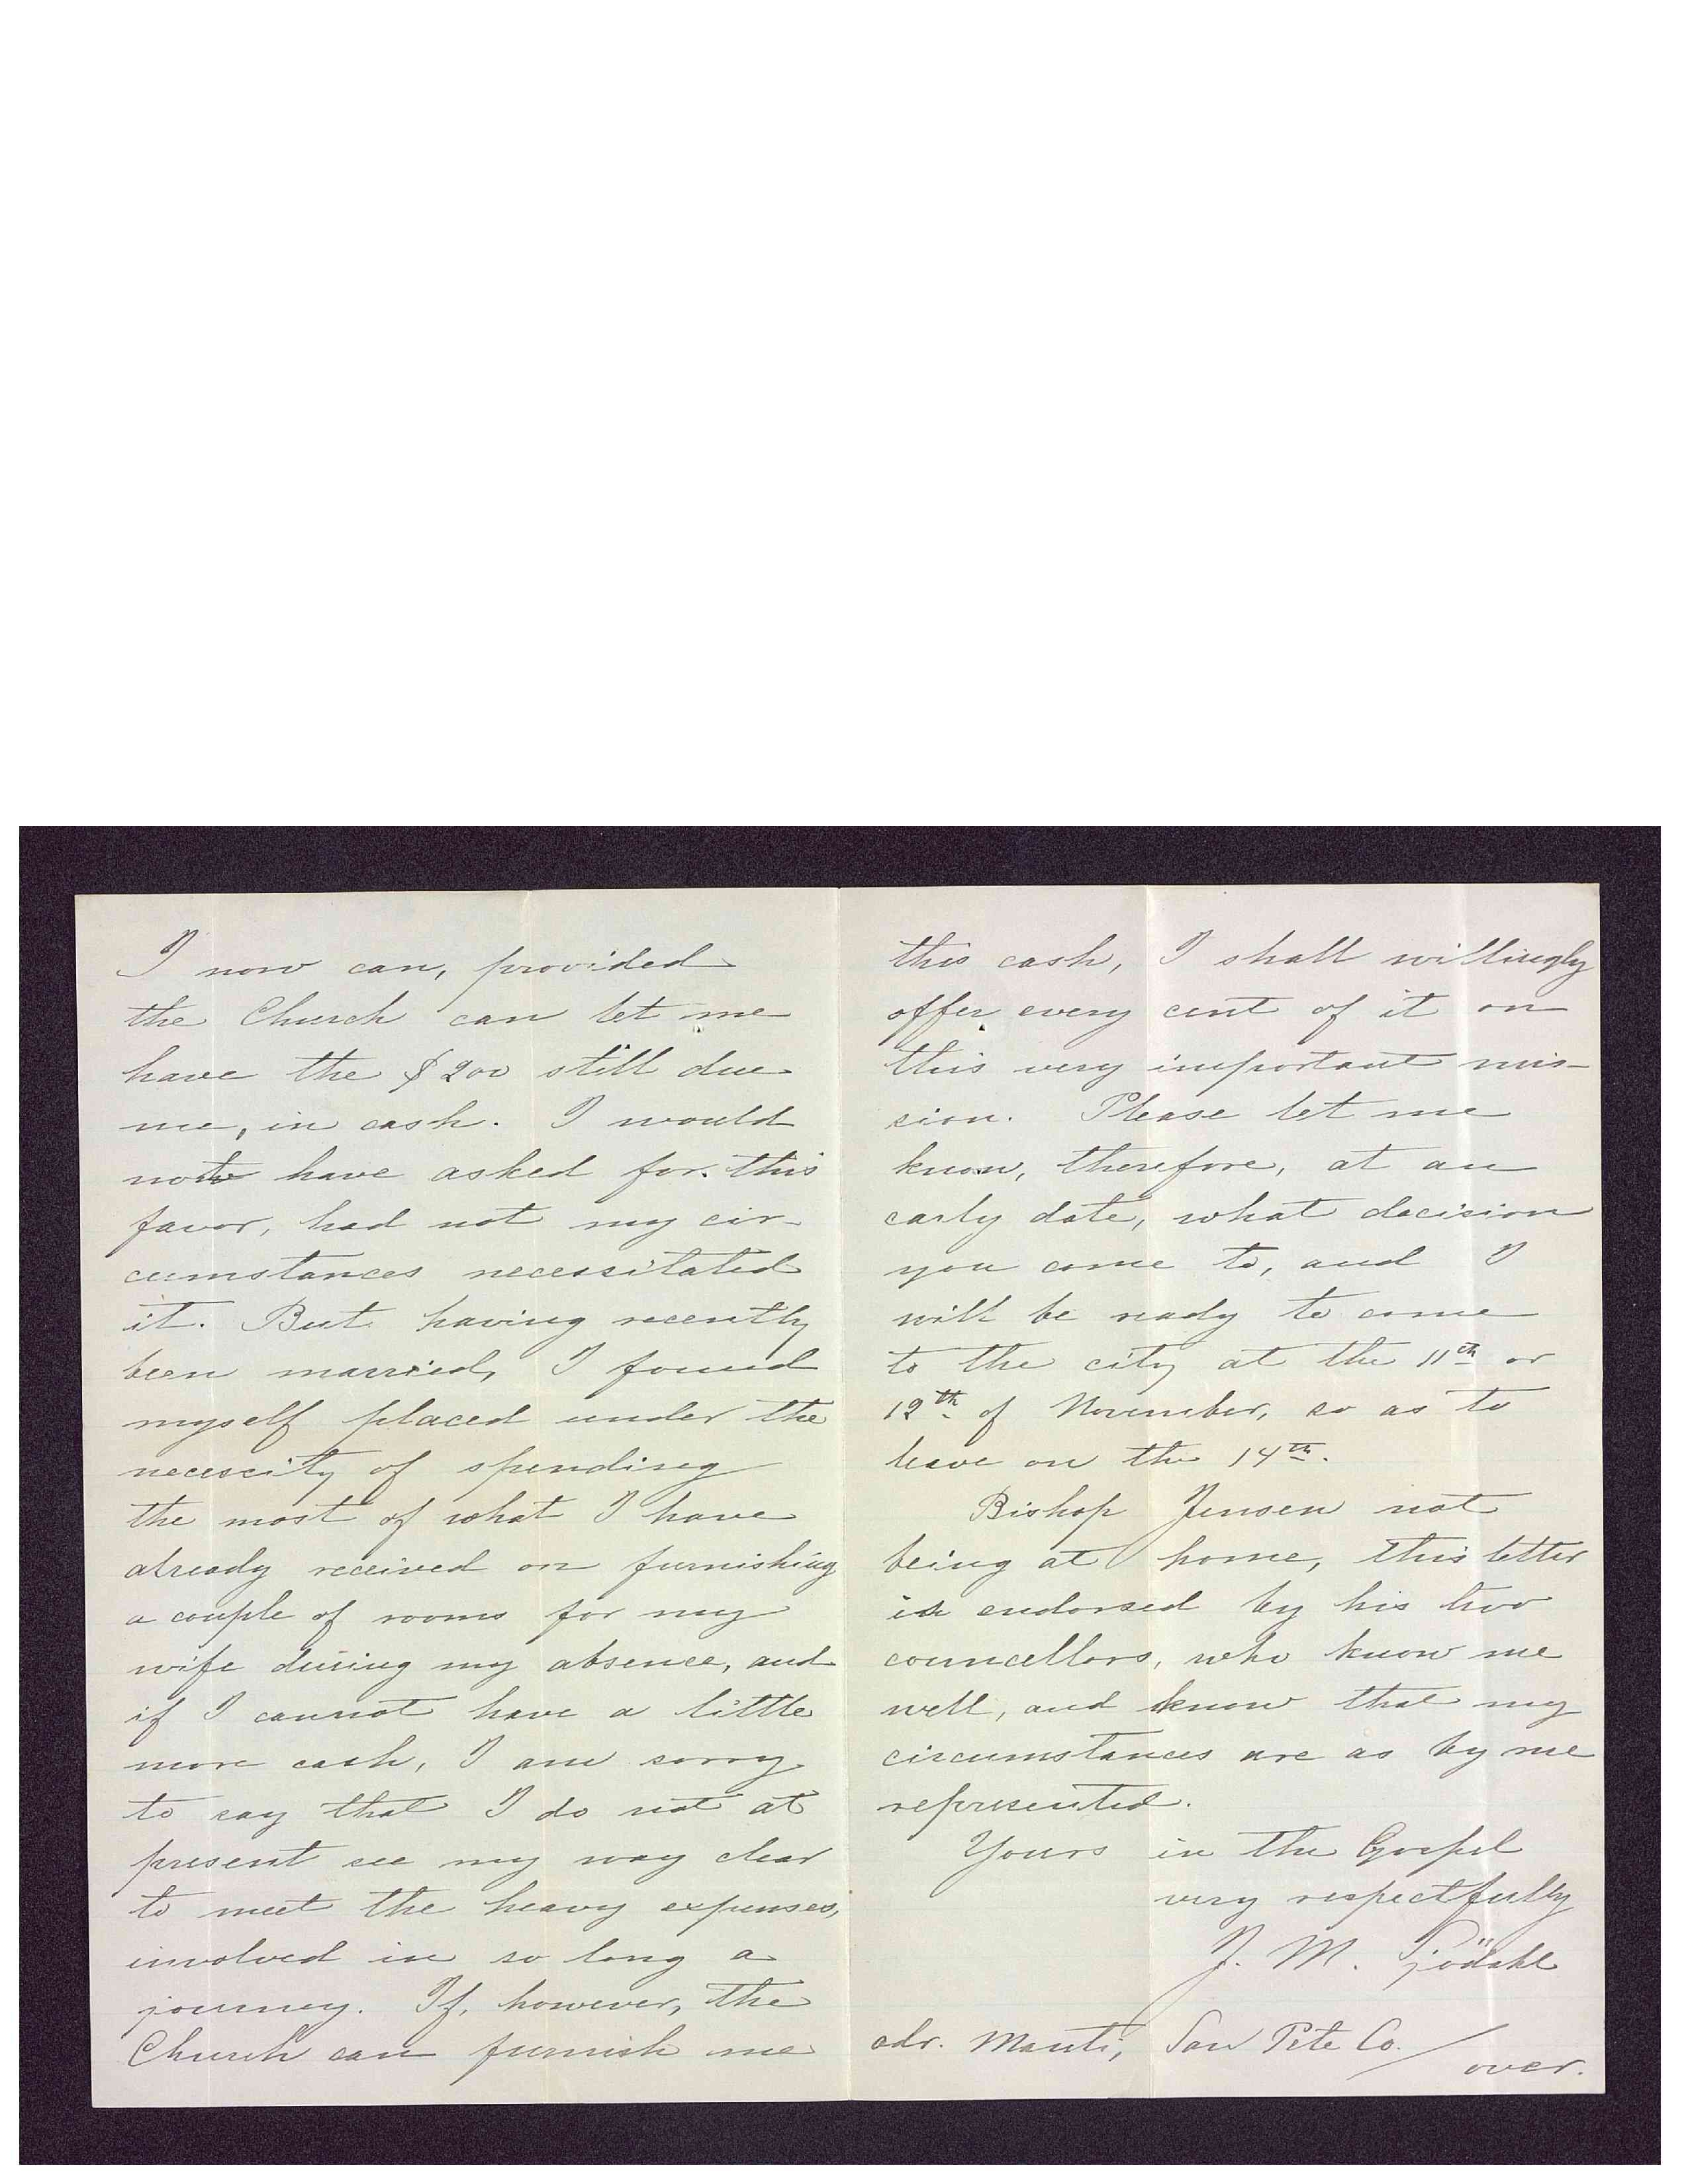 I now can, provided
the Church can let me
have the $200 still due
me, in cash. I would
not have asked for this
favor, had not my cir-
cumstances necessitated
it. But having recently
been married, I found
myself placed under the
necescity of spending
the most of what I have
already received on furnishing
a couple of rooms for my
wife during my absence, and
if I cannot have a little
more cash, I am sorry
to say that I do not at
present see my way clear
to meet the heavy expenses,
involved in so long a
journey. If, however, the
Church can furnish me
this cash, I shall willingly
offer every cent of it on
this very important mis-
sion. Please let me
know, therefore, at an
early date, what decision
you come to, and I
will be ready to come
to the city at the 11th or
12th of November, so as to
leave on the 14th.
Bishop Jensen not
being at home, this letter
is endorsed by his two
councellors, who know me
well, and know that my
circumstances are as by me
represented.
Yours in the Gospel
very respectfully
J. M. Sjödahl
adr. Manti, San Pete Co.
over.